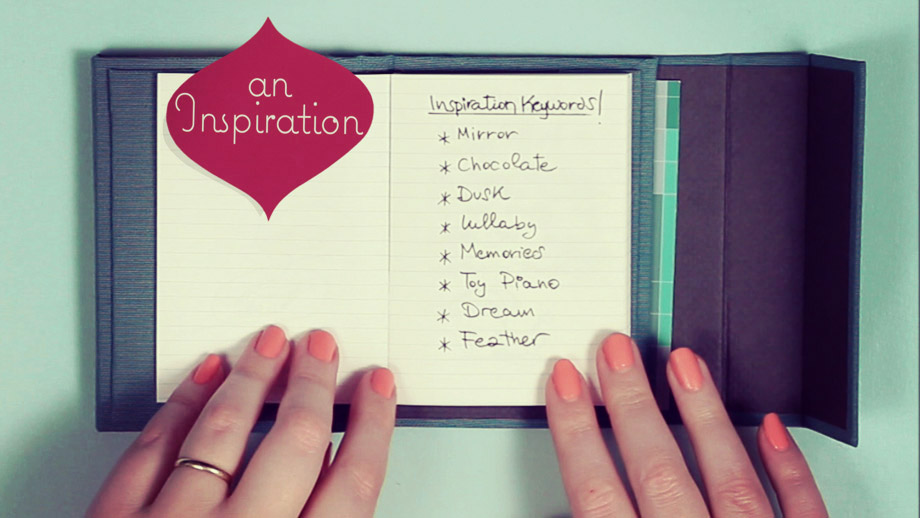 an
Inspiration
Inspiration Keywords!
* Mirror
* Chocolate
* Dusk
* Lullaby
* Memories
* Toy Piano
* Dream
* Feather